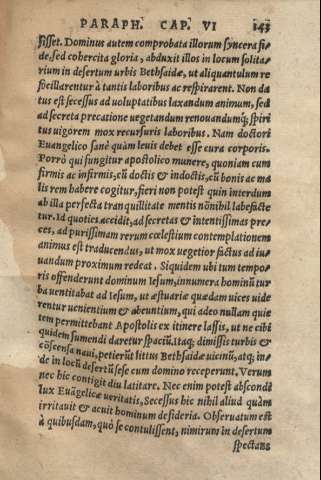 PARAPH. CAP. VI 143
fisset. Dominus autem comprobata illorum syncera fi-
de, sed cohercita gloria, abduxit illos in locum solita-
rium in desertum urbis Bethsaidæ, ut aliquantulum re
focillarentur à tantis laboribus ac respirarent. Non da
tus est secessus ad uoluptatibus laxandum animum, sed
ad secreta precatione uegetandum renouandumq; spiri
tus uigorem mox recursuris laboribus. Nam doctori
Euangelico sanè quàm leuis debet esse cura corporis.
Porrò qui fungitur apostolico munere, quoniam cum
firmis ac infirmis, cũ doctis & indoctis, cũ bonis ac ma
lis rem habere cogitur, fieri non potest quin interdum
ab illa perfecta tranquillitate mentis nõnihil labefacte
tur. Id quoties accidit, ad secretas & intentissimas pre-
ces, ad purissimam rerum cœlestium contemplationem
animus est traducendus, ut mox uegetior factus ad iu-
uandum proximum redeat. Siquidem ubi tum tempo-
ris offenderunt dominum Iesum, innumera hominũ tur
ba uentitabat ad Iesum, ut æstuaria quædam uices uide
rentur uenientium & abeuntium, qui adeo nullam quie
tem permittebant Apostolis ex itinere lassis, ut ne cibi
quidem sumendi daretur spaciũ. Itaq; dimissis turbis &
cõscensa naui, petierũt littus Bethsaidæ uicinũ, atq; in-
de in locũ desertũ sese cum domino receperunt. Verum
nec hic contigit diu latitare. Nec enim potest abscondi
lux Euãgelicæ ueritatis, Secessus hic nihil aliud quàm
irritauit & acuit hominum desideria. Obseruatum est
à quibusdam, quò se contulissent, nimirum in desertum
spectans